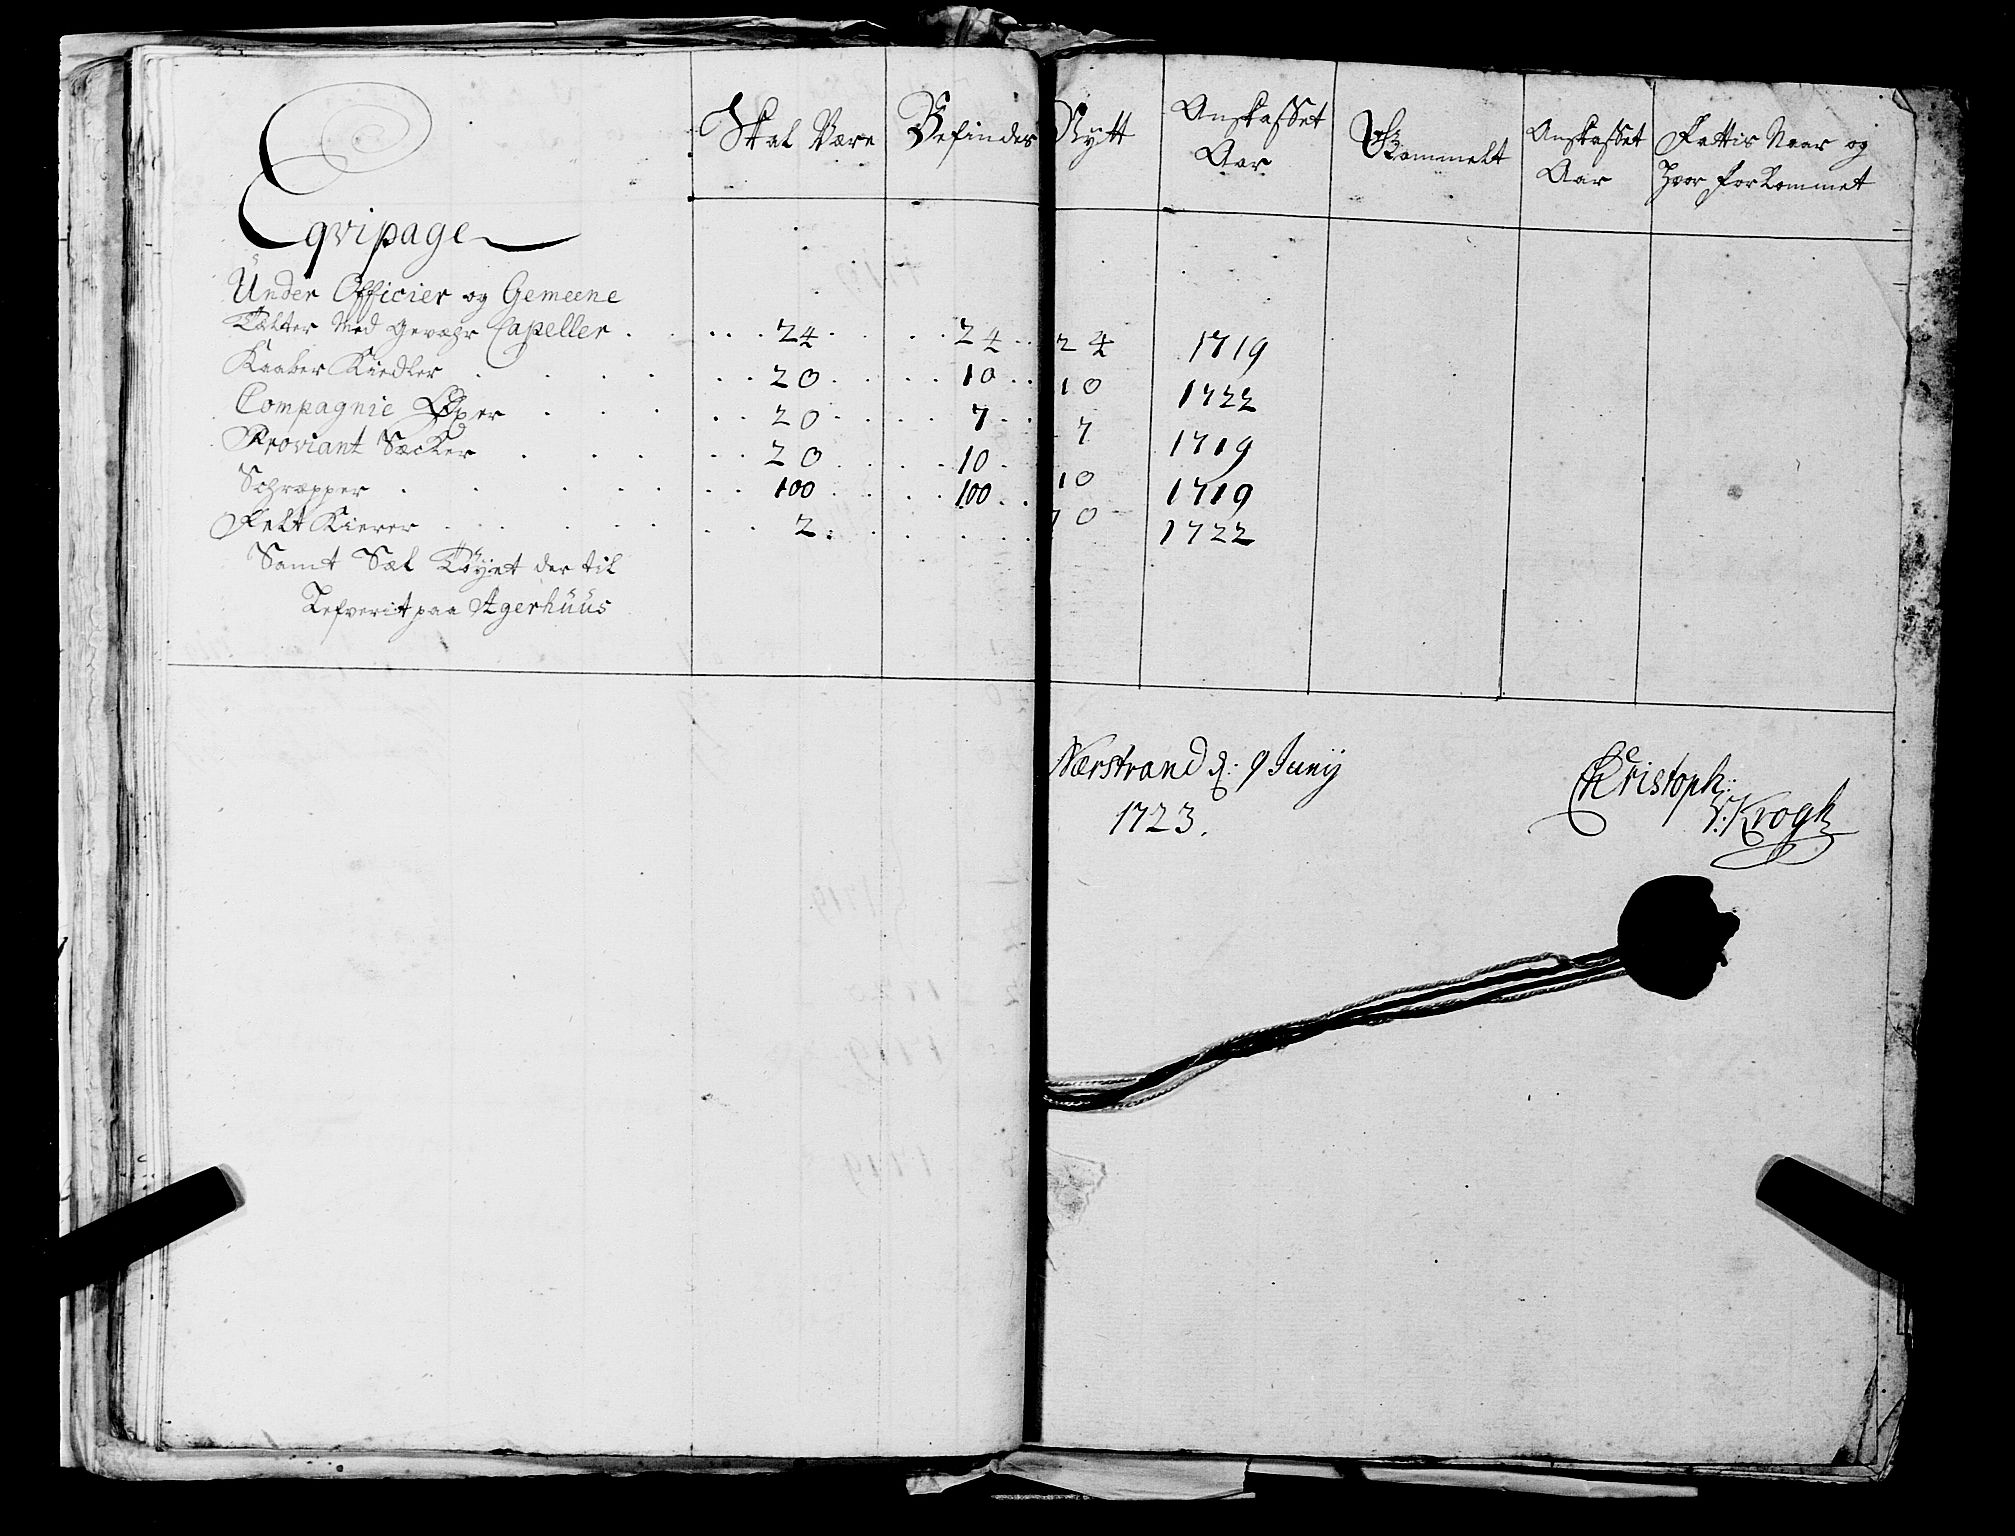 Skal Være Befindes Nytt Anskaffet Aar Gammelt Anskaffet Aar Fattis Naar og
Hvor forkommet
Eqvipage
Under Officier og Gemeene
Tælter Med Gevæhr Capeller . . . . 24 . . . 24 . . 24 1719
Kaaber Kiedler . . . . . 20 . . . 10 . . 10 1722
Compagnie Øxer . . . . . 20 . . . 7 . . 7 1719
Proviant Sæcker . . . . . 20 . . . 10 . 10 1719
Schræpper . . . . . . 100 . . . 100 . . 1722
Felt Kierer . . . . . . 2 : . . . . .
Samt Sæl Tøyet der til
Lefverit paa Agerhuus
Nærstrand d: 9 Junij
1723.
Christoph:
V: Krogh